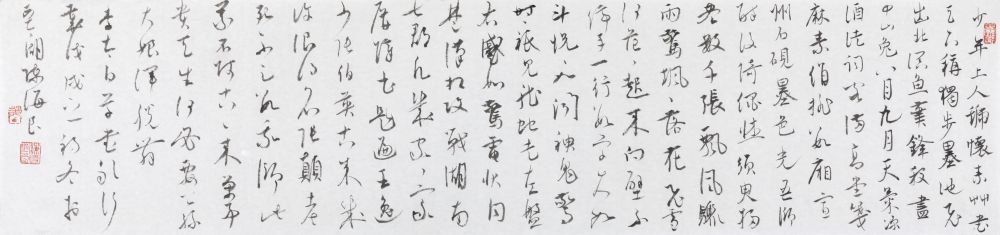 少年上人號懷素艸書
天下稱獨步墨池飛
出北溟魚筆鋒殺盡
中山兔八月九月天氣涼
酒徒詞客滿高堂箋
麻素絹排數廂宣
州石硯墨色光吾師
醉後倚繩牀須臾掃
盡數千張飄風驟
雨驚颯颯落花飛雪
何茫茫起來向壁不
停手一行數字大如
斗怳怳如聞神鬼驚
時時只見龍蛇走左盤
右蹙如驚電狀同
楚漢相攻戰湖南
七郡凡幾家家家
屏障書題遍王逸
少張伯英古來幾
許浪得名張顛老
死不足數我師此
義不師古古來萬事
貴天生何必要公孫
大娘渾脫舞
李太白草書歌行
歲戊戌之初冬於
湖陳海良